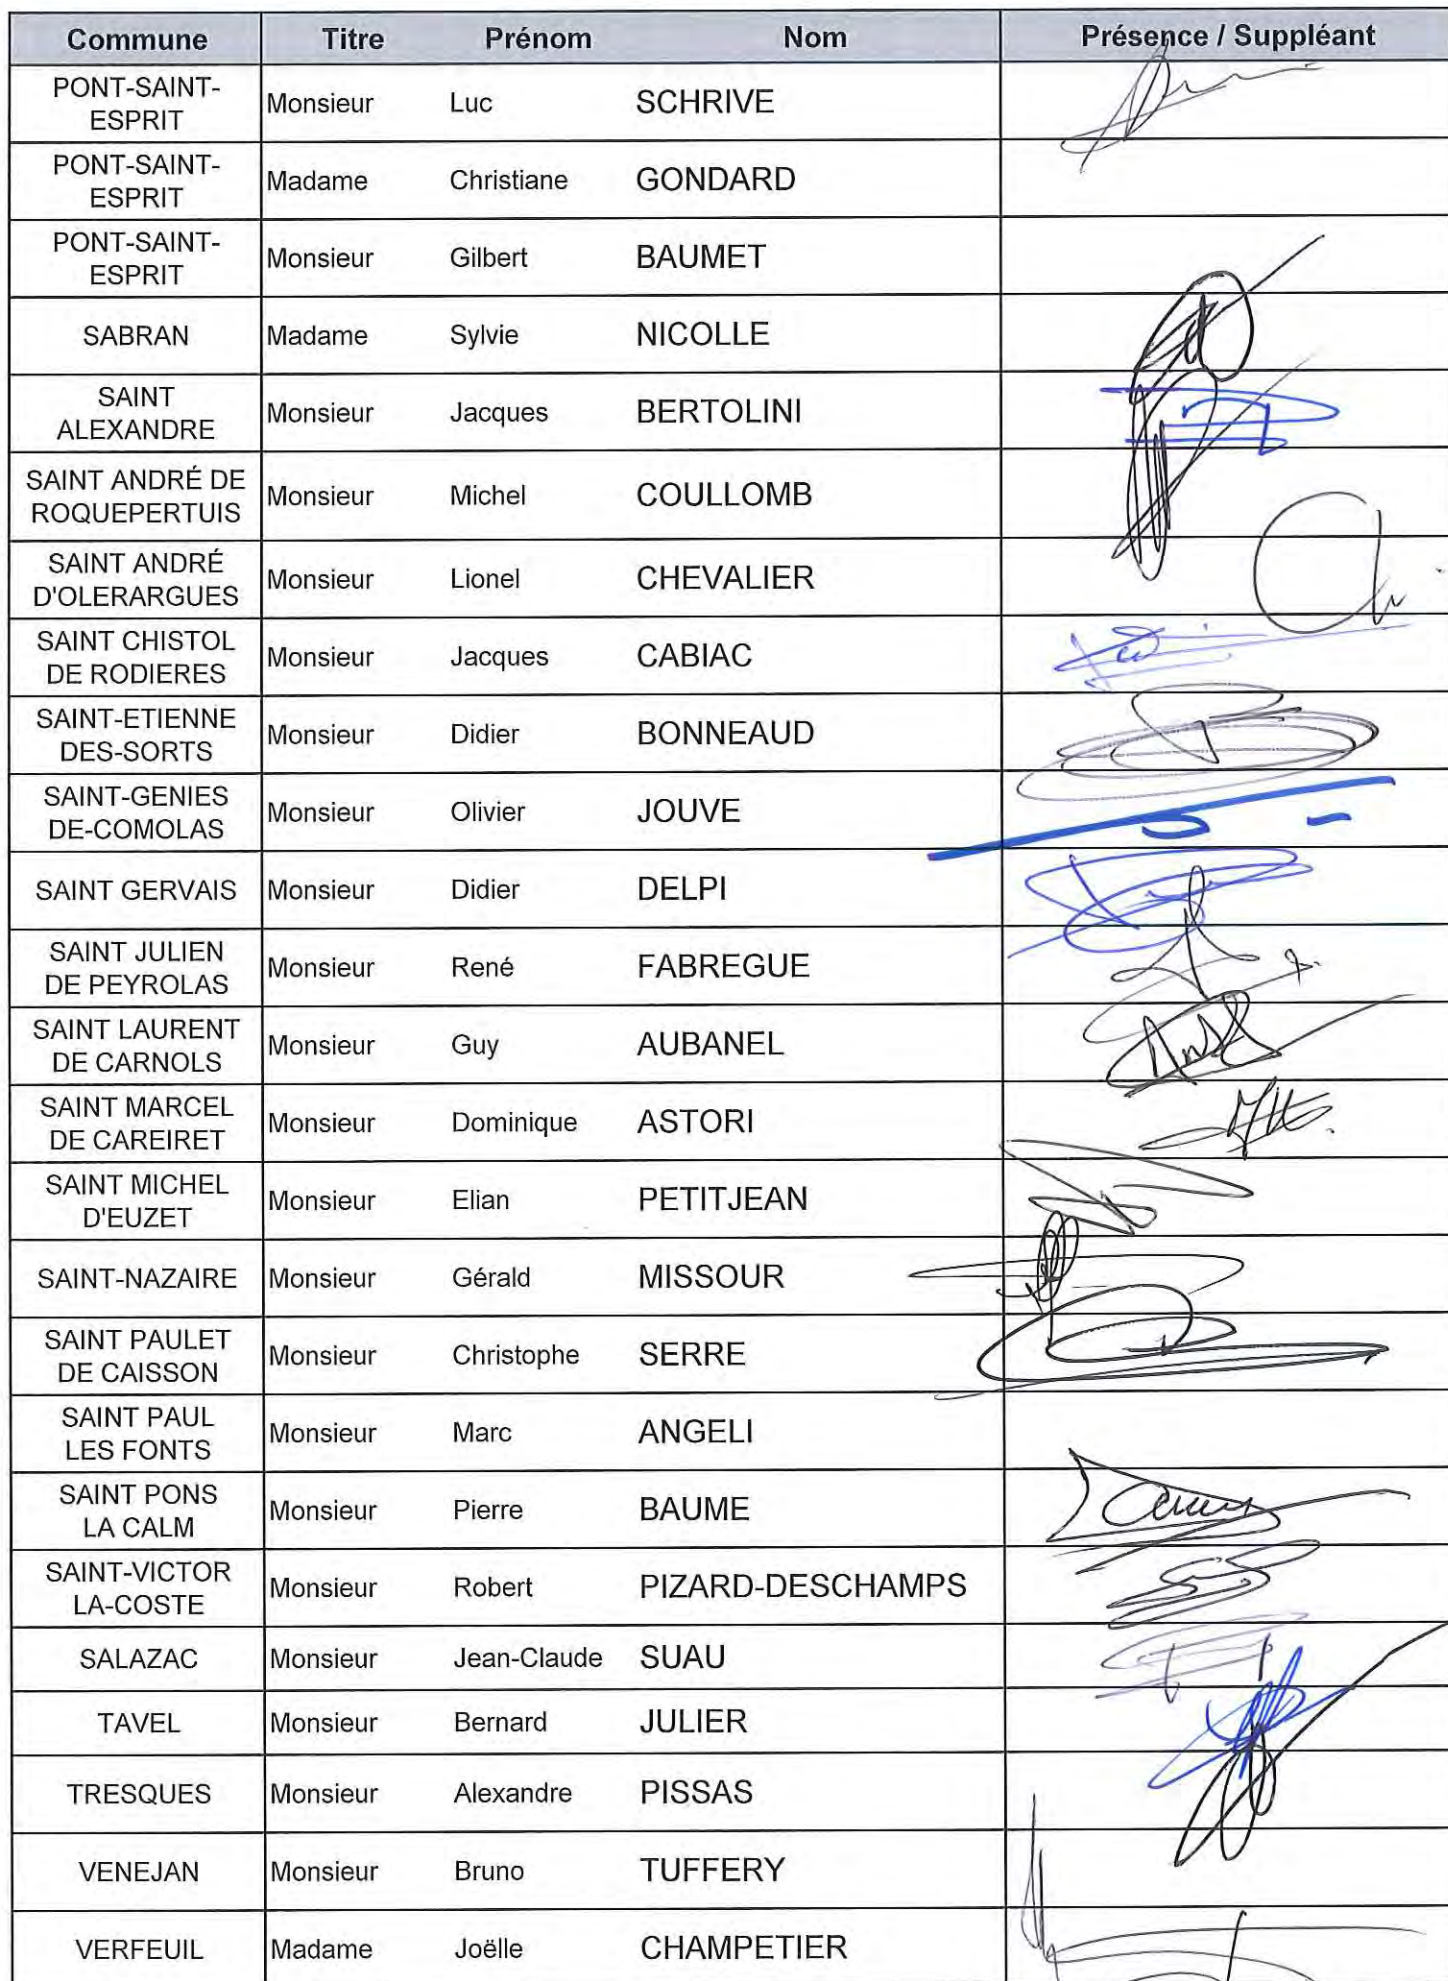 Commune Titre Prénom Nom Présence / Suppléant
PONT-SAINT-
ESPRIT
Monsieur Luc SCHRIVE
PONT-SAINT-
ESPRIT
Madame Christiane GONDARD
PONT-SAINT-
ESPRIT
Monsieur Gilbert BAUMET
SABRAN Madame Sylvie NICOLLE
SAINT
ALEXANDRE
Monsieur Jacques BERTOLINI
SAINT ANDRÉ DE
ROQUEPERTUIS
Monsieur Michel COULLOMB
SAINT ANDRÉ
D'OLERARGUES
Monsieur Lionel CHEVALIER
SAINT CHISTOL
DE RODIERES
Monsieur Jacques CABIAC
SAINT-ETIENNE
DES-SORTS
Monsieur Didier BONNEAUD
SAINT-GENIES
DE-COMOLAS
Monsieur Olivier JOUVE
SAINT GERVAIS Monsieur Didier DELPI
SAINT JULIEN
DE PEYROLAS
Monsieur René FABREGUE
SAINT LAURENT
DE CARNOLS
Monsieur Guy AUBANEL
SAINT MARCEL
DE CAREIRET
Monsieur Dominique ASTORI
SAINT MICHEL
D'EUZET
Monsieur Elian PETITJEAN
SAINT-NAZAIRE Monsieur Gérald MISSOUR
SAINT PAULET
DE CAISSON
Monsieur Christophe SERRE
SAINT PAUL
LES FONTS
Monsieur Marc ANGELI
SAINT PONS
LA CALM
Monsieur Pierre BAUME
SAINT-VICTOR
LA-COSTE
Monsieur Robert PIZARD-DESCHAMPS
SALAZAC Monsieur Jean-Claude SUAU
TAVEL Monsieur Bernard JULIER
TRESQUES Monsieur Alexandre PISSAS
VENEJAN Monsieur Bruno TUFFERY
VERFEUIL Madame Joëlle CHAMPETIER